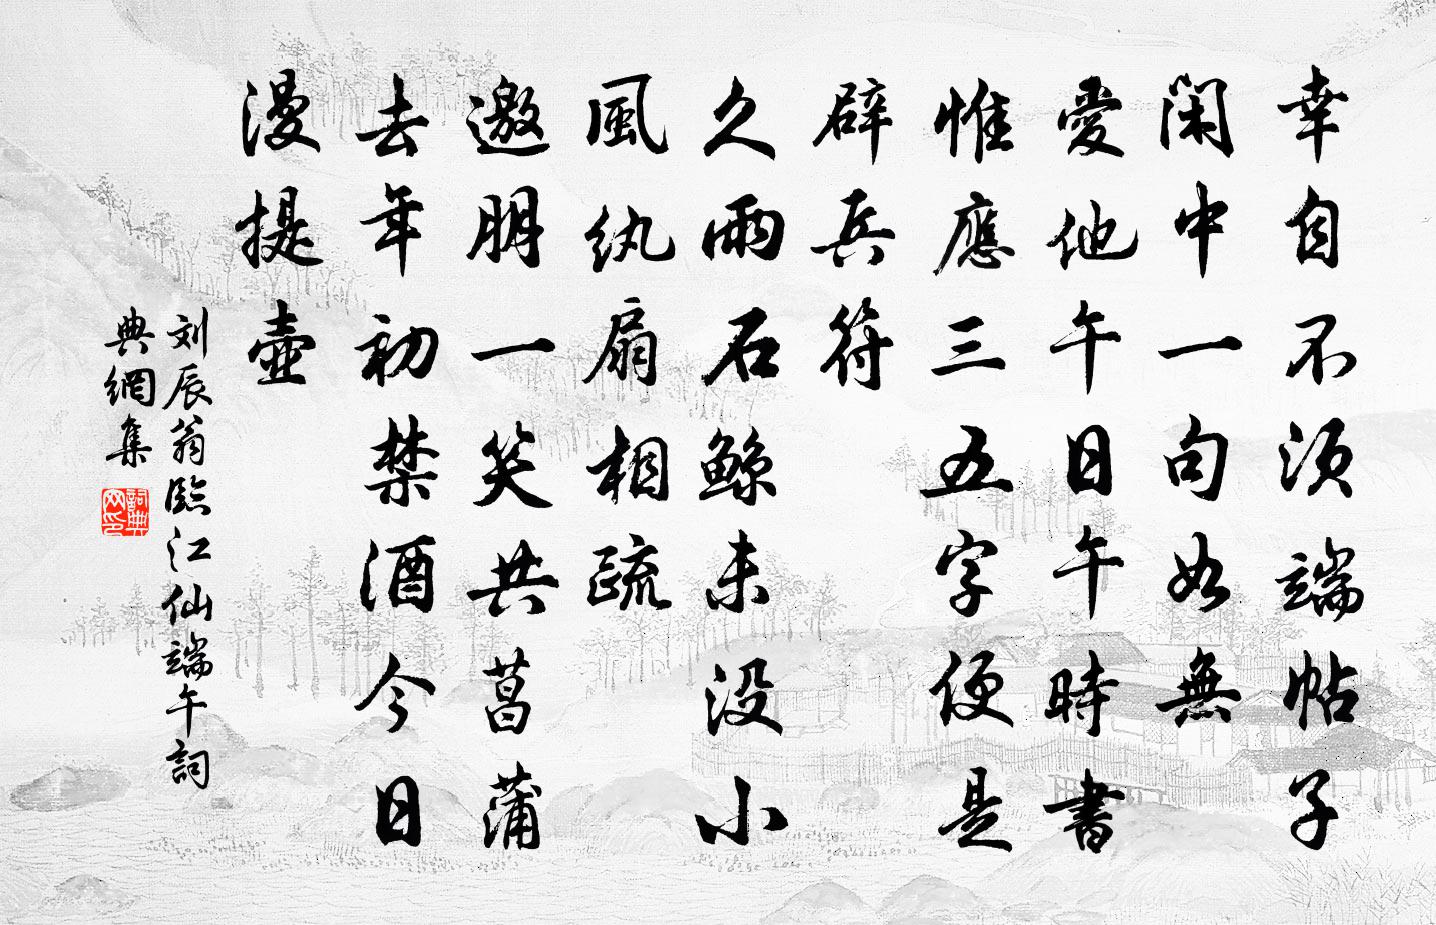 幸自不须端帖子
閑中一句如無
愛他午日午時書
惟應三五字便是
辟兵符
久雨石鲸未没小
風纨扇相疏
邀朋一笑共菖蒲
去年初禁酒今日
漫提壶
刘辰翁臨江仙端午詞
典網集
詞典网印